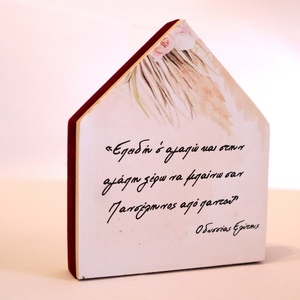 «Επειδή σ' αγαπώ και στην
αγάπη ξέρω να μπαίνω σαν
Πανσέληνος από παντού»
Οδυσσέας Ελύτης